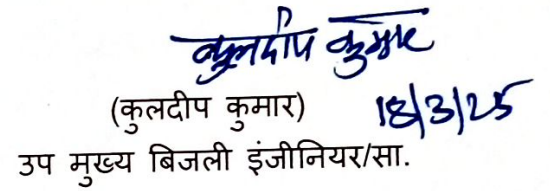 कुलदीप कुमार
(कुलदीप कुमार) 18/3/25
उप मुख्य बिजली इंजीनियर/सा.